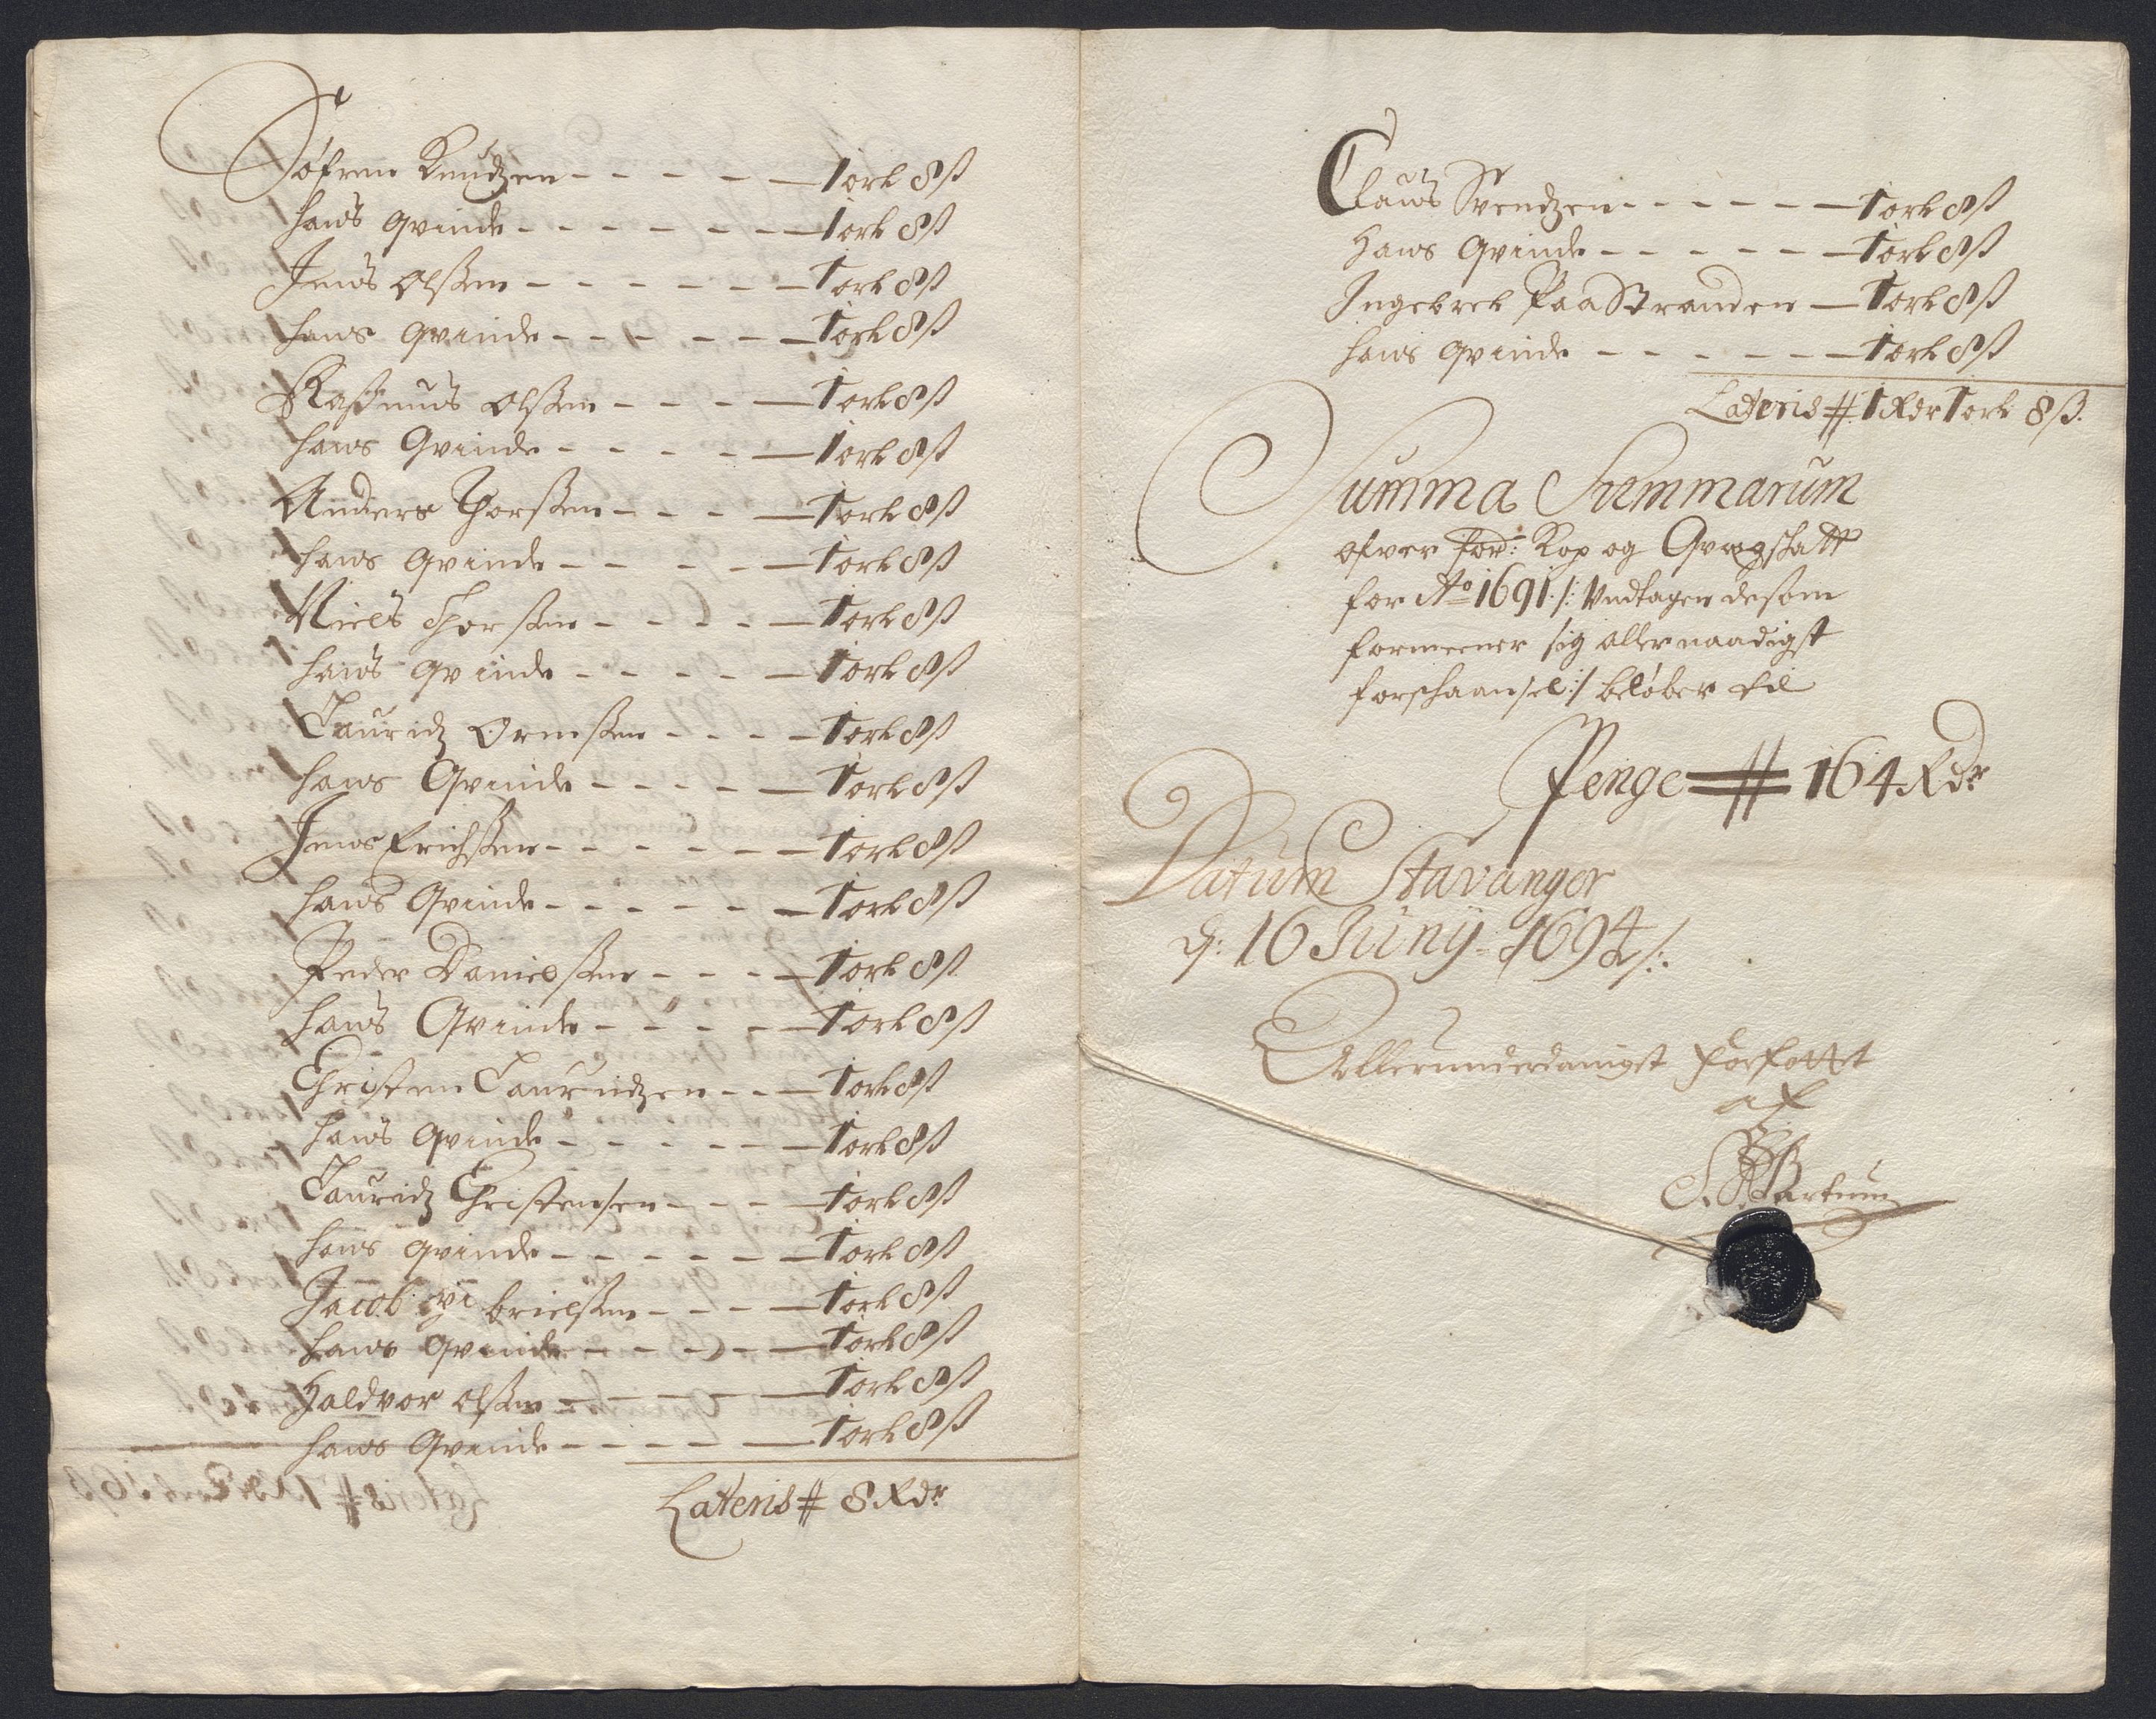 Søfren Knudzen - - - - - 1 ort 8 ß
hans Qvinde - - - - - - - 1 ort 8 ß
Jens Olßen - - - - - - - 1 ort 8 ß
hans Qvinde - - - - - - 1 ort 8 ß
Raßmus Olßen - - - - 1 ort 8 ß
hans Qvinde - - - - - 1 ort 8 ß
Anders Thorßen - - - - 1 ort 8 ß
hans Qvinde - - - - - 1 ort 8 ß
Niels Thorßen - - - - - 1 ort 8 ß
hans Qvinde - - - - - 1 ort 8 ß
Lauridz Ormßen - - - - 1 ort 8 ß
hans Qvinde - - - - - 1 ort 8 ß
Jens Erichßen - - - - - - 1 ort 8 ß
hans Qvinde - - - - - - 1 ort 8 ß
Peder Danielßen - - - - 1 ort 8 ß
hans Qvinde - - - - - 1 ort 8 ß
Christen Lauridzen - - - 1 ort 8 ß
hans Qvinde - - - - - - 1 ort 8 ß
Lauridz Christensen - - - - 1 ort 8 ß
hans Qvinde - - - - - - 1 ort 8 ß
Jacob Gabrielßen - - - - 1 ort 8 ß
hans Qvinde - - - - - 1 ort 8 ß
Haldvor Olßen - - - - - 1 ort 8 ß
hans Qvinde - - - - - 1 ort 8 ß
Lateris # 8 Rdr
Claus Svendzen - - - - - - 1 ort 8 ß
Hans Qvinde - - - - - - 1 ort 8 ß
Ingebret Paa Stranden - 1 ort 8 ß
hans Qvinde - - - - - - 1 ort 8 ß
Lateris # 1 Rdr 1 ort 8 ß.
Summa Summarum
ofver for: Kop og Qvægschatt
for Ao 1691 /: Undtagen de som
formeener sig allernaadigst
forschaansel :/ beløber til
Penge # 164 Rdr
Datum Stavanger
d: 16 Junij 1694 /:.
Allerunderdanigst forfattet
af